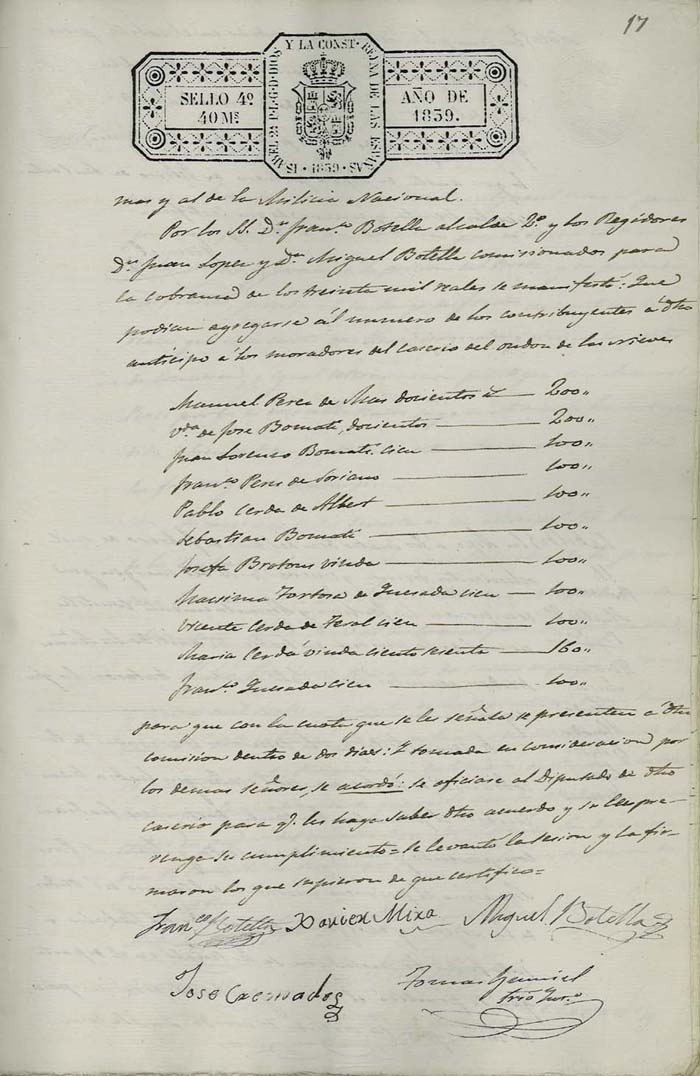 17
SELLO 4º
40 Ms
ISABEL 2ª P.L.G.D.DIOS Y LA CONST. REYNA DE LAS ESPAÑAS
· 1839 ·
AÑO DE
1839.
mas y al de la Milicia Nacional.
Por los SS. Dn. Franco. Botella alcalde 2º y los Regidores
Dn. Juan Lopez y Dn. Miguel Botella comisionados para
la cobranza de los treinta mil reales se manifestó: Que
podian agregarse ál numero de los contribuyentes á dho
anticipo á los moradores del caserio del ondon de las nieves
Manuel Perez de Mas docientos rs. — 200"
vda. de Jose Bomati, docientos — 200"
Juan Lorenzo Bomati cien — 100"
Franco. Peres de Soriano — 100"
Pablo Cerda de Albert — 100"
Sebastian Bomati — 100"
Josefa Brotons viuda — 100"
Maxima Tortosa de Quesada cien — 100"
Vicente Cerda de Feral cien — 100"
Maria Cerdá viuda ciento sesenta — 160"
Franco. Quesada cien — 100"
para que con la cuota que se les señala se presenten á dha
comision dentro de dos dias: Y tomada en consideracion por
los demas señores, se acordó: se oficiase al Diputado de dho
caserio para q. les haga saber dho acuerdo y su
cumplimiento = se levantó la sesion y la fir-
maron los que supieron de que certifico =
Franco. Botella Xavier Mira Miguel Botella
Jose Cremades
Tomas
Srio